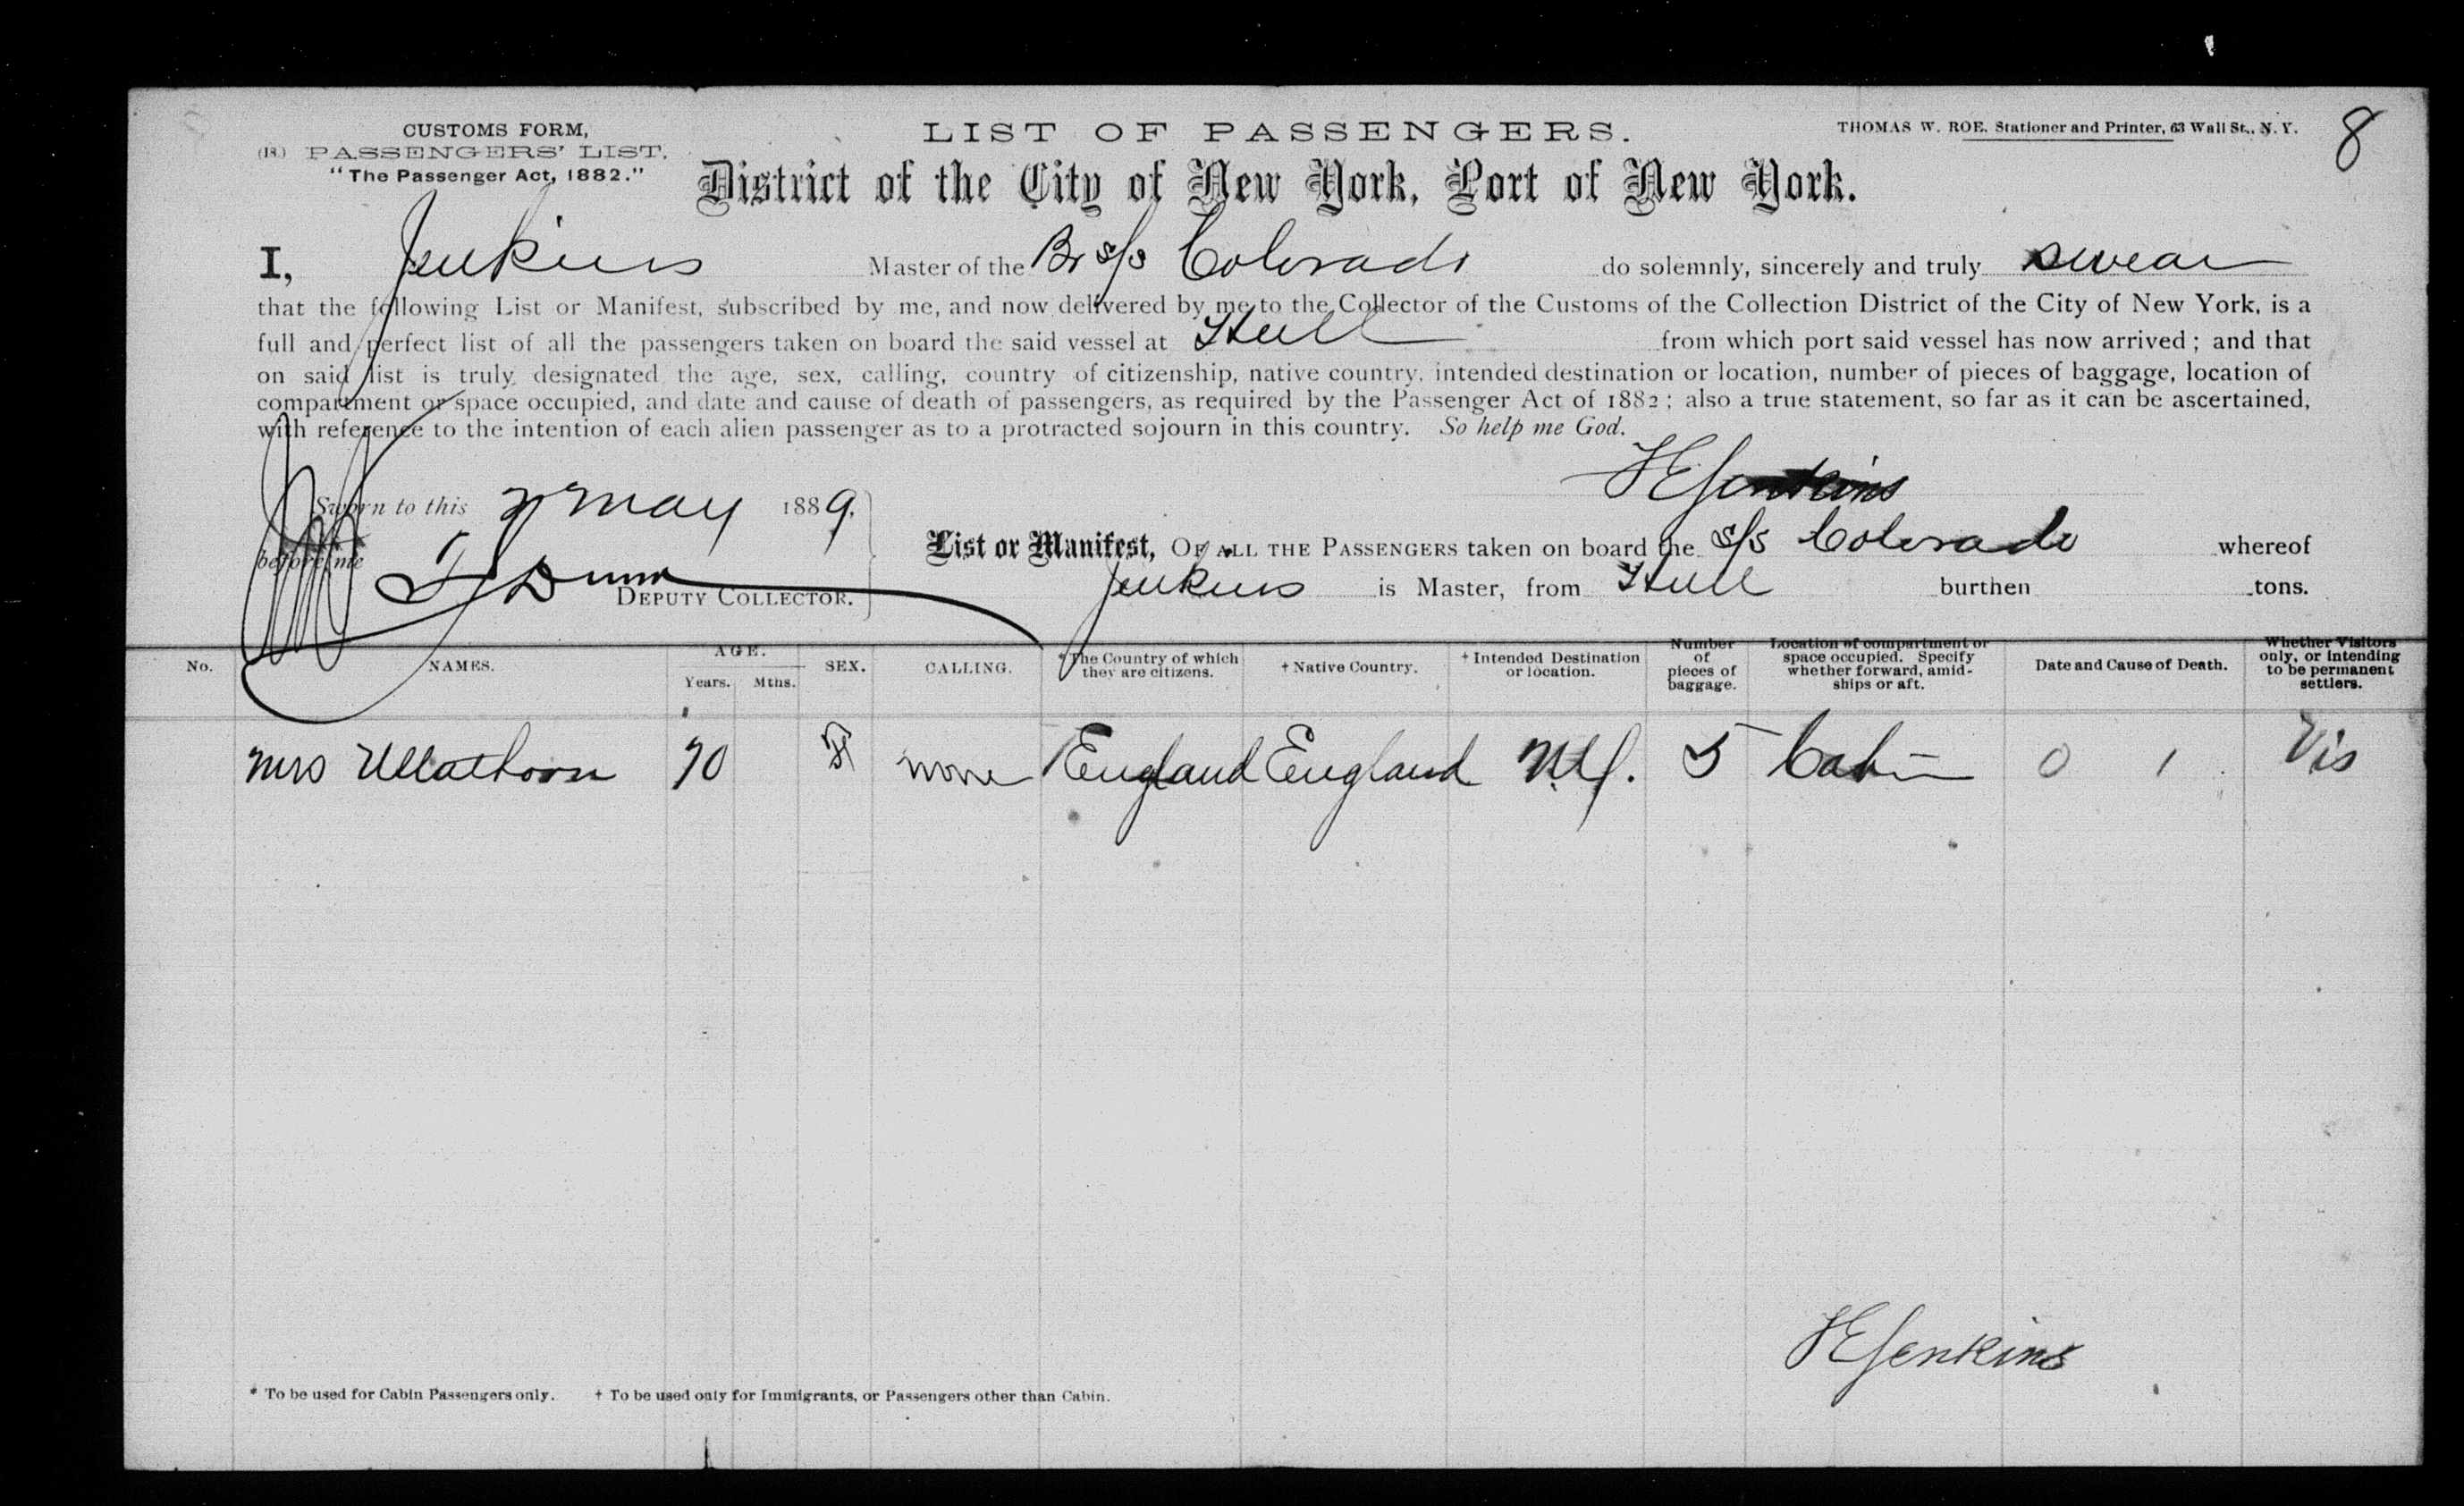 CUSTOMS FORM,
(18.) PASSENGERS' LIST.
"The Passenger Act, 1882."
LIST OF PASSENGERS.
THOMAS W. ROE. Stationer and Printer, 63 Wall St., N.Y.
8
District of the City of New York, Port of New York.
I, Jenkins Master of the Br s/s Colorado do solemnly, sincerely and truly swear
that the following List or Manifest, subscribed by me, and now delivered by me to the Collector of the Customs of the Collection District of the City of New York, is a
full and perfect list of all the passengers taken on board the said vessel at Hull from which port said vessel has now arrived; and that
on said list is truly designated the age, sex, calling, country of citizenship, native country, intended destination or location, number of pieces of baggage, location of
compartment or space occupied, and date and cause of death of passengers, as required by the Passenger Act of 1882; also a true statement, so far as it can be ascertained,
with reference to the intention of each alien passenger as to a protracted sojourn in this country. So help me God.
Jenkins
Sworn to this May 1889,
before me Dunn
DEPUTY COLLECTOR.
List or Manifest, OF ALL THE PASSENGERS taken on board the s/s Colorado whereof
Jenkins is Master, from Hull burthen tons.
No. NAMES. AGE. Years. Mths. SEX. CALLING. *The Country of which they are citizens. †Native Country. †Intended Destination or location. Number of pieces of baggage. Location of compartment or space occupied. Specify whether forward, amidships or aft. Date and Cause of Death. Whether Visitors only, or intending to be permanent settlers.
Mrs Ullathorn 70 F none England England 5 Cabin 0 1 Vis
Jenkins
* To be used for Cabin Passengers only. † To be used only for Immigrants, or Passengers other than Cabin.